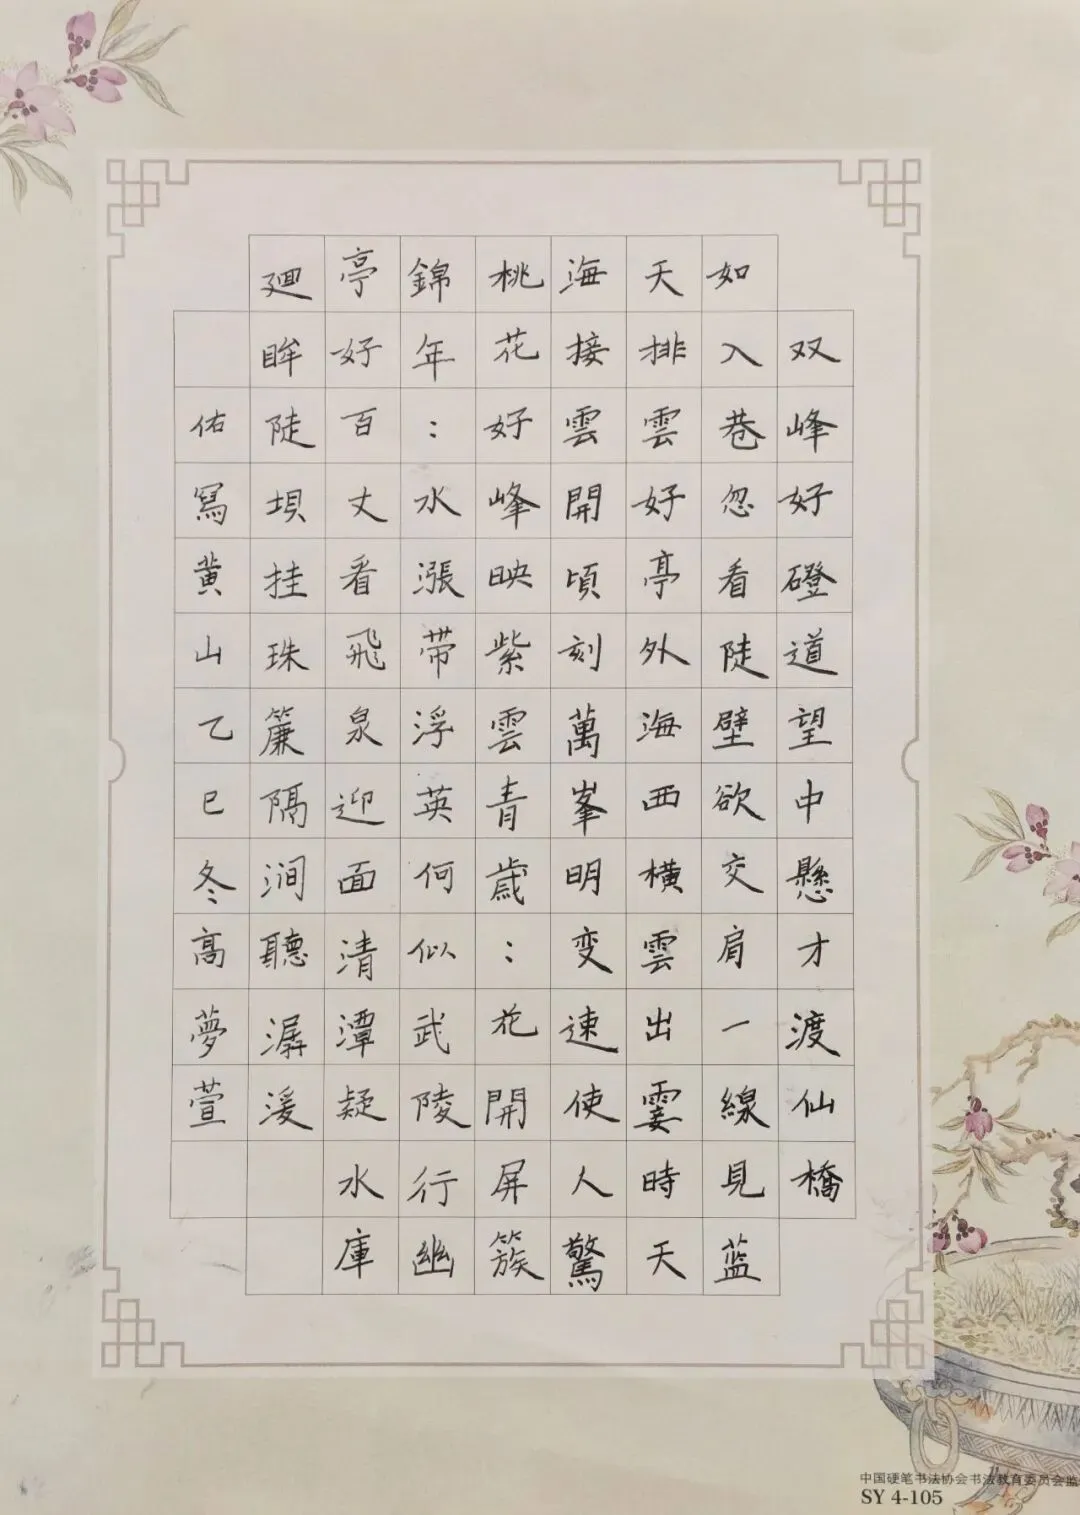 双峰好磴道望中懸才渡仙橋
如入巷忽看陡壁欲交肩一線見蓝
天排雲好亭外海西橫雲出霎時天
海接雲開頃刻萬峯明变速使人驚
桃花好峰映紫雲青歲：花開屏簇
錦年：水漲带浮英何似武陵行幽
亭好百丈看飛泉迎面清潭疑水庫
廻眸陡垻挂珠簾隔涧聽潺湲
佑寫黄山乙巳冬高夢萱
中国硬笔书法协会书法教育委员会监
SY 4-105